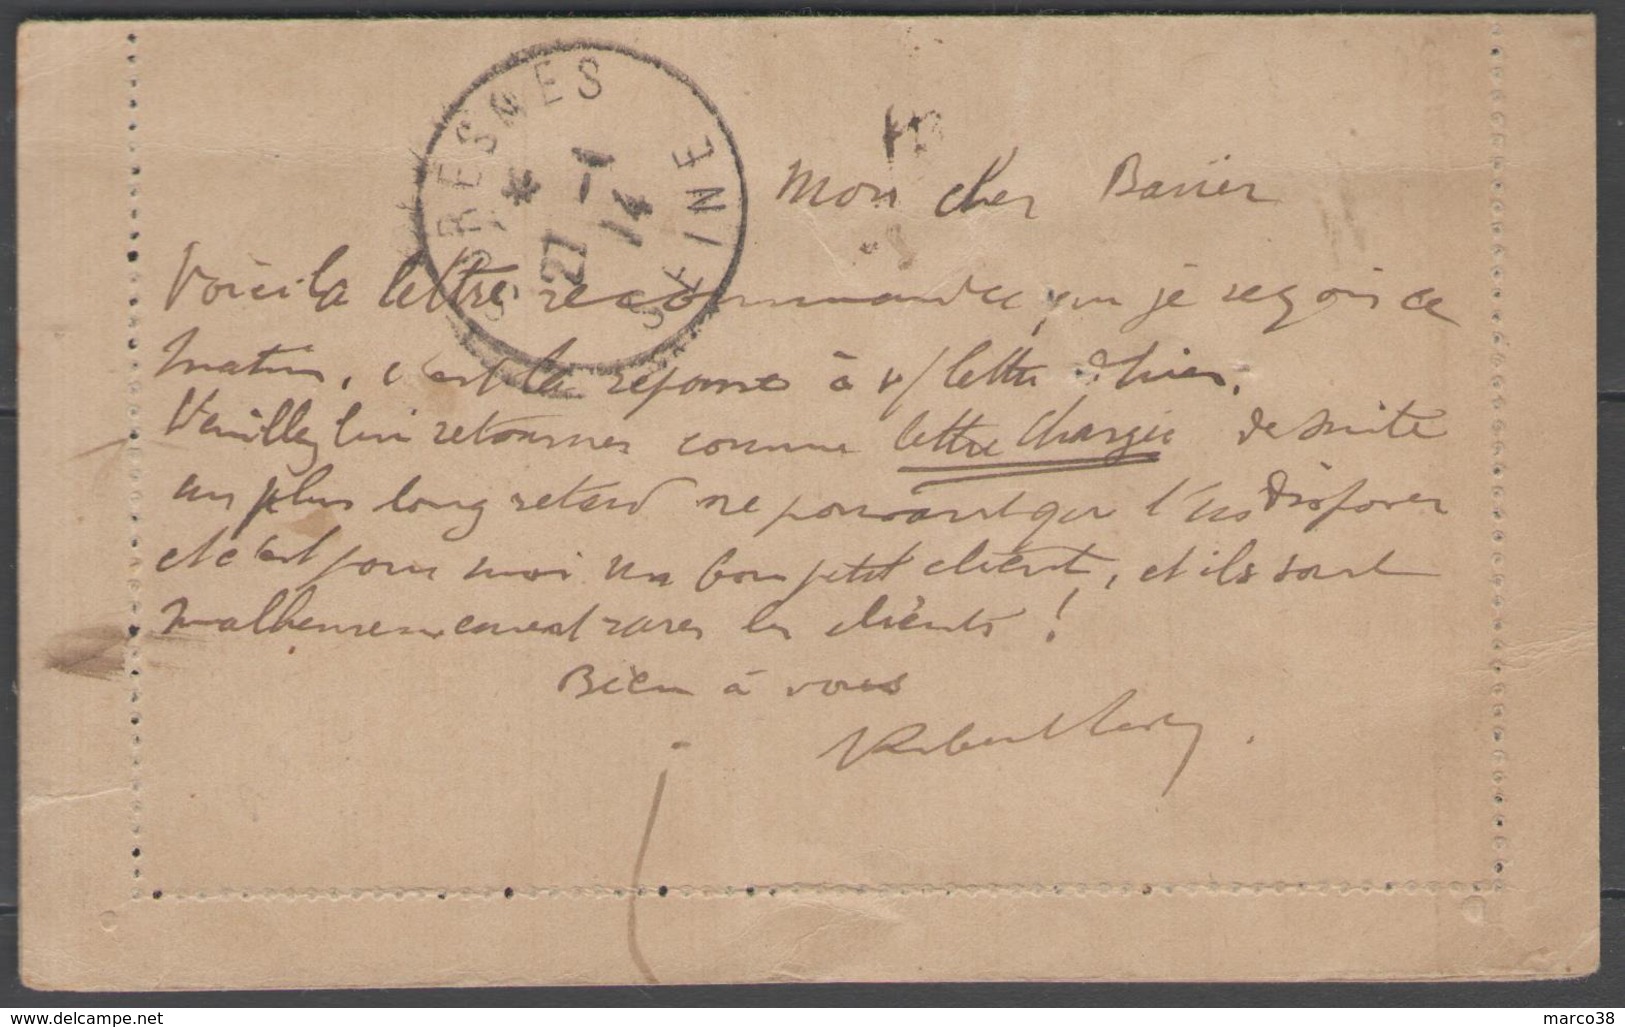 SURESNES
*
27 -1
14
SEINE
Mon cher
Voici la lettre recommandée que je reçois ce
matin, c'est la réponse à v/ lettre d'hier.
Veuillez lui retourner comme lettre chargée de suite
un plus long retard ne pouvant que l'indisposer
et c'est pour moi un bon petit client, et ils sont
malheureusement rares les clients !
Bien à vous
www.delcampe.net
marco38